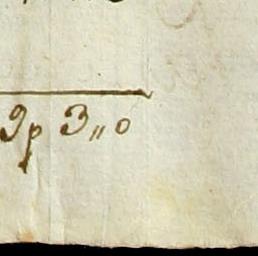 9p 3,,0